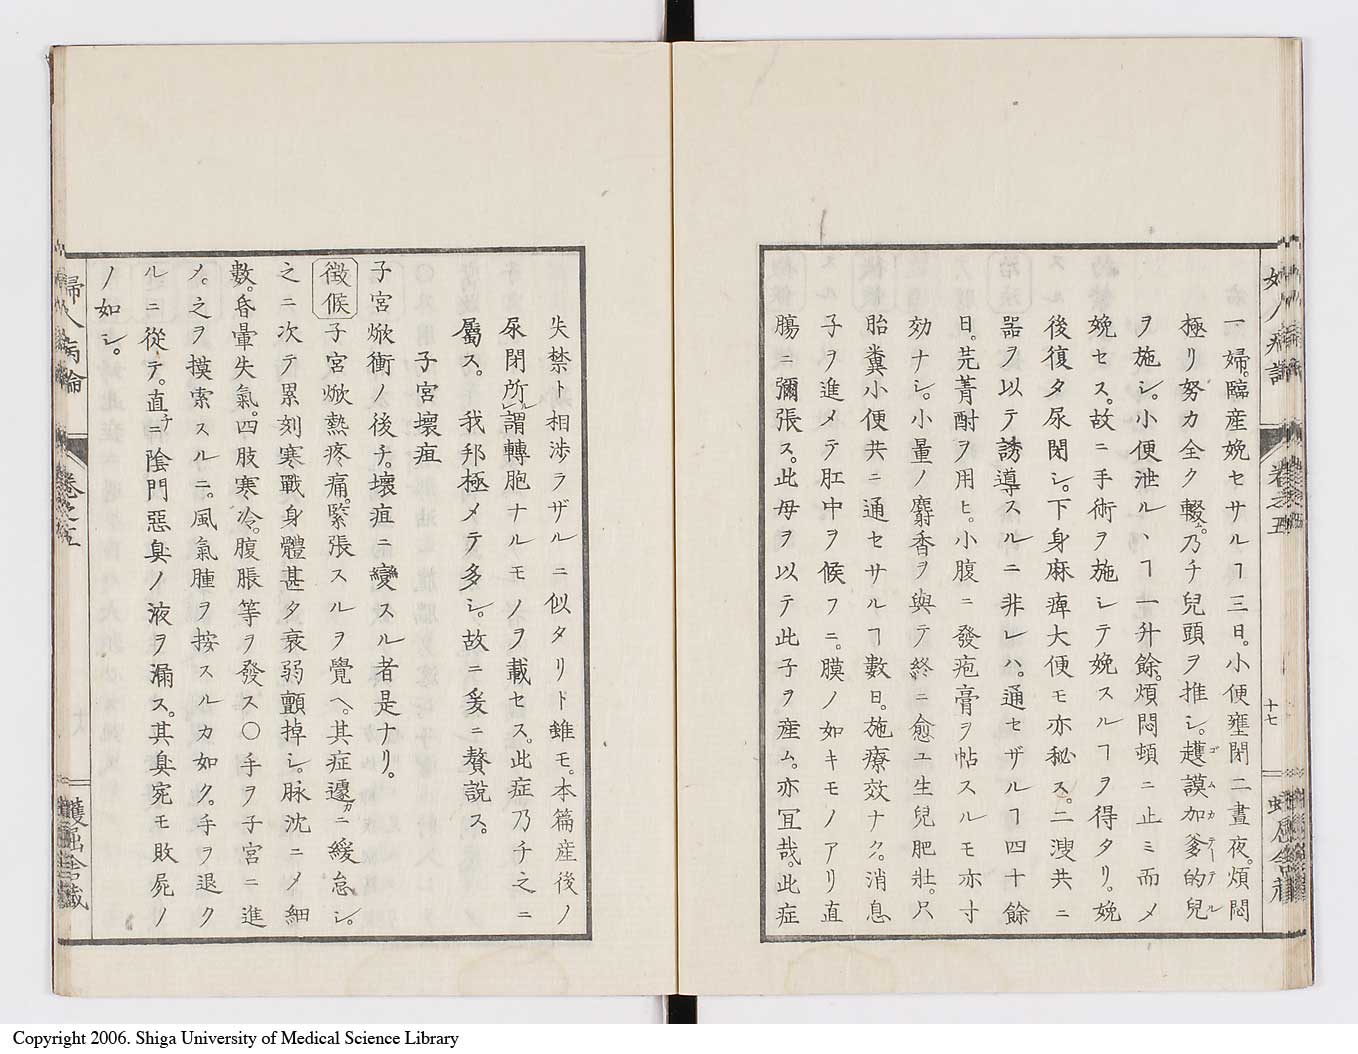 一婦。臨産娩セサルヿ三日。小便壅閉二晝夜。煩悶
極リ努力全ク輟ム。乃チ兒頭ヲ推シ。護謨加爹的兒ゴムカテーテル
ヲ施シ。小便泄ルヽヿ一升餘。煩悶頓ニ止ミ而メ
娩セス。故ニ手術ヲ施シテ娩スルヿヲ得タリ。娩
後復タ尿閉シ。下身麻痺大便モ亦秘ス。二溲共ニ
器ヲ以テ誘導スルニ非レハ。通セザルヿ四十餘
日。芫菁酎ヲ用ヒ。小腹ニ發疱膏ヲ帖スルモ亦寸
効ナシ。小量ノ麝香ヲ與テ終ニ愈ユ生兒肥壯。尺
胎糞小便共ニ通セサルヿ數日。施療效ナク。消息
子ヲ進メテ肛中ヲ候フニ。膜ノ如キモノアリ直
膓ニ彌張ス。此母ヲ以テ此子ヲ産ム。亦冝哉。此症
十七
失禁ト相渉ラザルニ似タリト雖モ。本篇産後ノ
尿閉所謂ル轉胞ナルモノヲ載セス。此症乃チ之ニ
屬ス。我邦極メテ多シ。故ニ爰ニ贅説ス。
子宮壞疽
子宮焮衝ノ後チ。壞疽ニ變スル者是ナリ。
徴候 子宮焮熱疼痛。緊張スルヲ覺ヘ。其症遽カニ緩怠シ。
之ニ次テ累刻寒戰身體甚タ衰弱顫掉シ。脉沈ニメ細
數。昏暈失氣。四肢寒冷。腹脹等ヲ發ス〇手ヲ子宮ニ進
メ。之ヲ摸索スルニ。風氣腫ヲ按スルカ如ク。手ヲ退ク
ルニ從テ。直チニ陰門惡臭ノ液ヲ漏ス。其臭宛モ敗屍ノ
ノ如シ。
婦人病論
卷之五
Copyright 2006. Shiga University of Medical Science Library